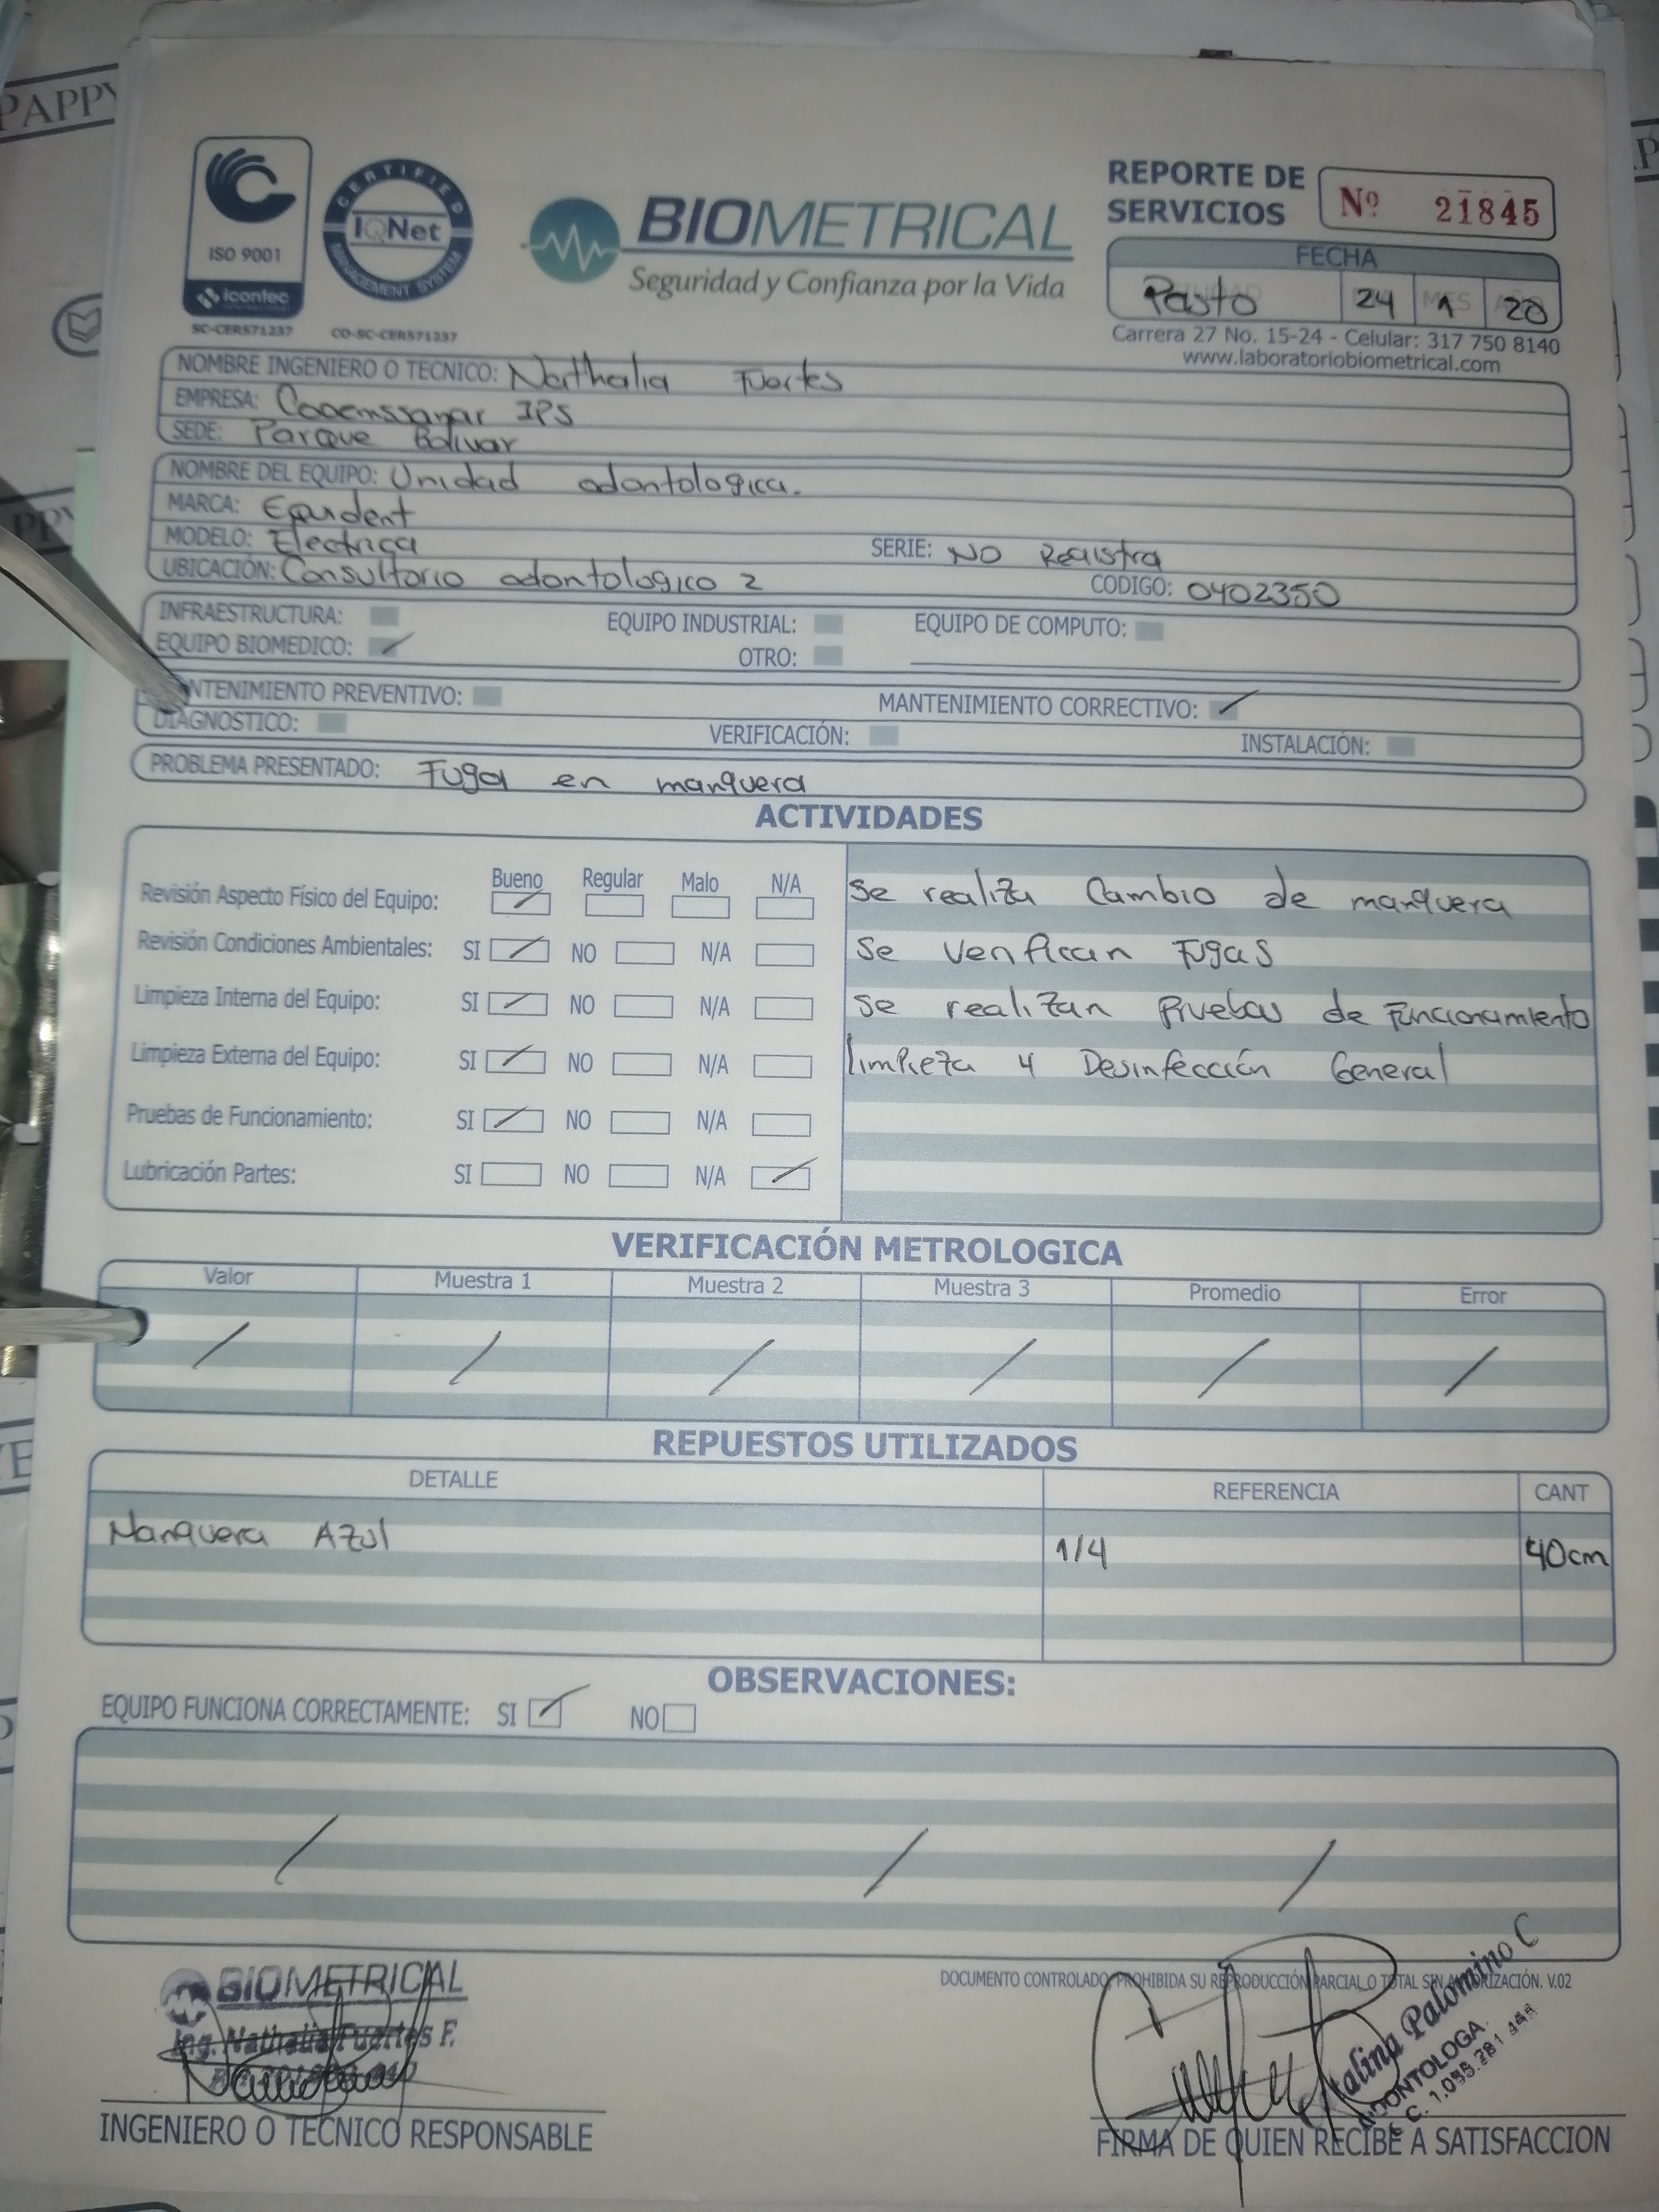 PAPPY
ISO 9001
icontec
SC-CER571237
CERTIFIED
IQNet
MANAGEMENT SYSTEM
CO-SC-CER571237
BIOMETRICAL
Seguridad y Confianza por la Vida
REPORTE DE
SERVICIOS
Nº 21845
FECHA
Pasto 24 1 20
Carrera 27 No. 15-24 - Celular: 317 750 8140
www.laboratoriobiometrical.com
NOMBRE INGENIERO O TECNICO: Nathalia Fuertes
EMPRESA: Cooemssanar IPS
SEDE: Parque Bolivar
NOMBRE DEL EQUIPO: Unidad odontologica.
MARCA: Equident
MODELO: Electrica SERIE: NO Registra
UBICACIÓN: Consultorio odontologico 2 CODIGO: 0402350
INFRAESTRUCTURA: EQUIPO INDUSTRIAL: EQUIPO DE COMPUTO:
EQUIPO BIOMEDICO: OTRO:
NTENIMIENTO PREVENTIVO: MANTENIMIENTO CORRECTIVO:
DIAGNOSTICO: VERIFICACIÓN: INSTALACIÓN:
PROBLEMA PRESENTADO: Fuga en manguera
ACTIVIDADES
Bueno Regular Malo N/A
Revisión Aspecto Físico del Equipo:
Revisión Condiciones Ambientales: SI NO N/A
Limpieza Interna del Equipo: SI NO N/A
Limpieza Externa del Equipo: SI NO N/A
Pruebas de Funcionamiento: SI NO N/A
Lubricación Partes: SI NO N/A
Se realiza Cambio de manguera
Se Verifican Fugas
Se realizan Pruebas de Funcionamiento
limpieza y Desinfección General
VERIFICACIÓN METROLOGICA
Valor Muestra 1 Muestra 2 Muestra 3 Promedio Error
REPUESTOS UTILIZADOS
DETALLE REFERENCIA CANT
Manguera Azul 1/4 40cm
OBSERVACIONES:
EQUIPO FUNCIONA CORRECTAMENTE: SI NO
DOCUMENTO CONTROLADO, PROHIBIDA SU REPRODUCCIÓN PARCIAL O TOTAL SIN AUTORIZACIÓN. V.02
BIOMETRICAL
Ing. Nathalia Fuertes F.
INGENIERO O TECNICO RESPONSABLE
Catalina Palomino C
ODONTOLOGA
FIRMA DE QUIEN RECIBE A SATISFACCION